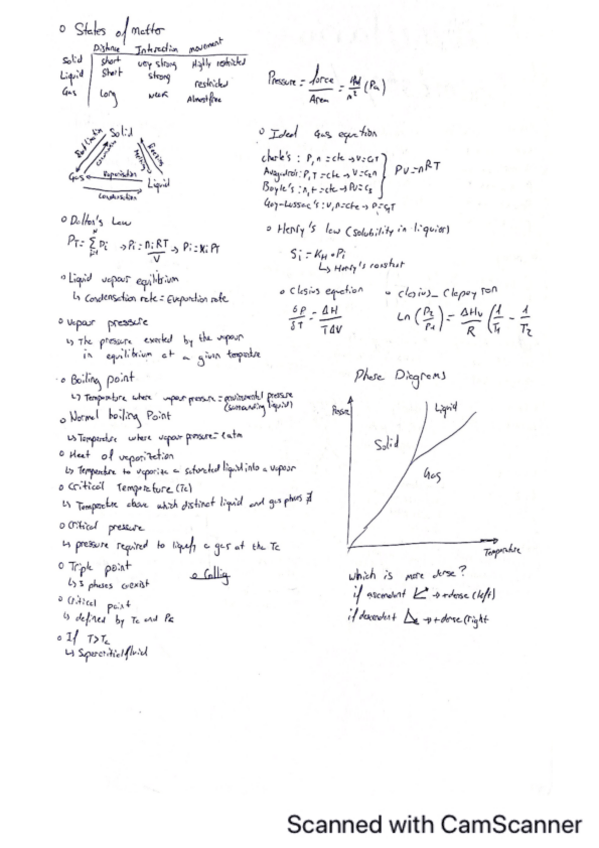 o States of matter
Distance Interaction movement
Solid short very strong Highly restricted
Liquid short strong restricted
Gas Long weak Almost free
Pressure = force/Area = (Pa)
Solid
Gas
Liquid
Sublimation
Freezing
Melting
Vaporisation
Condensation
o Ideal Gas equation
charle's: P,n = cte → V = C₁T
Avogadro's: P,T = cte → V = C₂n
Boyle's: n,t = cte → PV = C₃
Gay-Lussac's: V,n = cte → P = C₄T
PV = nRT
o Dalton's Law
P_T = Σ Pi → Pi = niRT/V → Pi = Xi PT
o Henry's law (solubility in liquids)
Si = K_H · Pi
↳ Henry's constant
o Liquid vapour equilibrium
↳ Condensation rate = Evaporation rate
o Clasius equation
δP/δT = ΔH/TΔV
o clasius_Clapeyron
Ln (P2/P1) = ΔHv/R (1/T1 - 1/T2
o Vapour pressure
↳ The pressure exerted by the vapour
in equilibrium at a given temperature
o Boiling point
↳ Temperature where vapour pressure = environmental pressure
(surrounding liquid)
o Normal boiling Point
↳ Temperature where vapour pressure = 1 atm
o Heat of vaporization
↳ Temperature to vaporize a saturated liquid into a vapour
o Critical Temperature (Tc)
↳ Temperature above which distinct liquid and gas phases ∄
o Critical pressure
↳ pressure required to liquefy a gas at the Tc
o Triple point
↳ 3 phases coexist
o Critical point
↳ defined by Tc and Pc
o If T>Tc
↳ Supercritical fluid
Phase Diagrams
Pressure
Solid
Liquid
Gas
Temperature
which is more dense?
if ascendent → + dense (left)
if descendent → + dense (right
Scanned with CamScanner